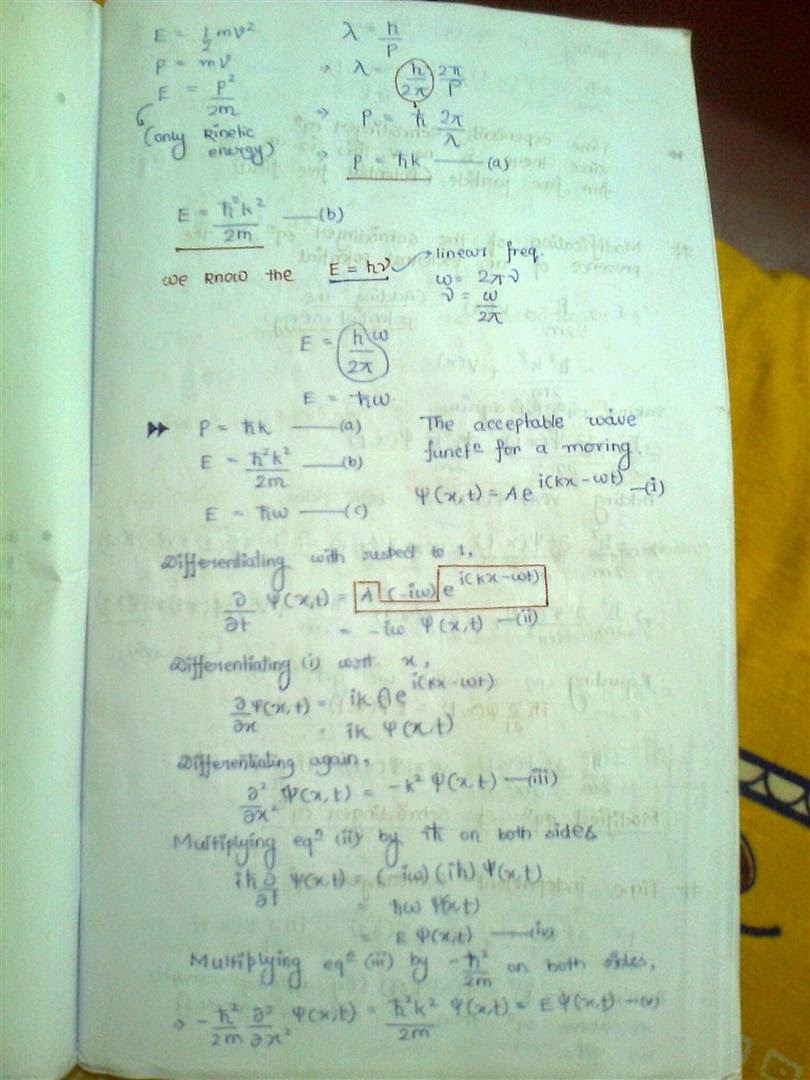 E = 1/2 mv²    λ = h/P
P = mv    ⇒ λ = h/2π 2π/P
E = P²/2m    ⇒ P = ħ 2π/λ
(only kinetic energy)    ⇒ P = ħk ——(a)
E = ħ²k²/2m ——(b)
we know the E = hν → linear freq.
ω = 2πν
ν = ω/2π
E = h/2π ω
E = ħω
P = ħk ——(a)    The acceptable wave
E = ħ²k²/2m ——(b)    functⁿ for a moving.
E = ħω ——(c)    Ψ(x,t) = A e^i(kx-ωt) —(i)
Differentialing with rusbect to t,
∂/∂t Ψ(x,t) = A (-iω) e^i(kx-ωt)
= -iω Ψ(x,t) —(ii)
Differentiating (i) wort. x,
∂/∂x Ψ(x,t) = ik A e^i(kx-ωt)
= ik Ψ(x,t)
Differentiating again,
∂²/∂x² Ψ(x,t) = -k² Ψ(x,t) —(iii)
Multiplying eqⁿ (ii) by iħ on both sides
iħ ∂/∂t Ψ(x,t) = (-iω)(iħ) Ψ(x,t)
= ħω Ψ(x,t)
= E Ψ(x,t) ——(iv)
Multiplying eqⁿ (iii) by -ħ²/2m on both sides,
⇒ -ħ²/2m ∂²/∂x² Ψ(x,t) = ħ²k²/2m Ψ(x,t) = E Ψ(x,t) —(v)